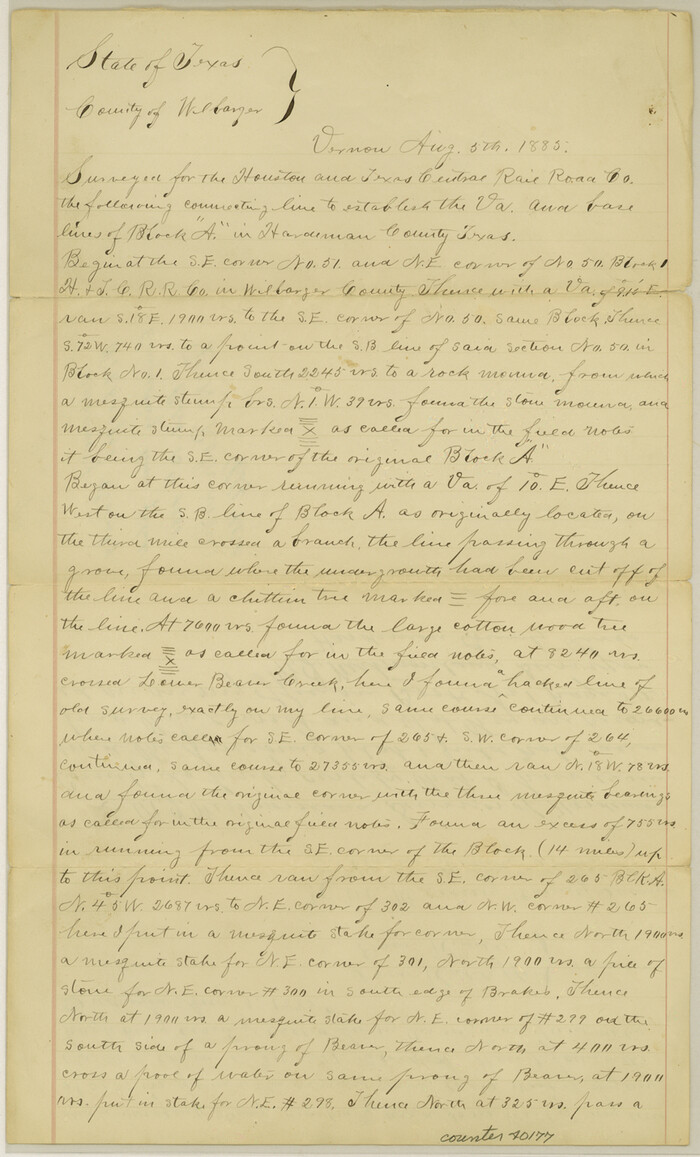 State of Texas
County of Wilbarger
Vernon Aug. 5th. 1885.
Surveyed for the Houston and Texas Central Rail Road Co.
the following connecting line to establish the Va. and base
lines of Block "A." in Hardeman County Texas.
Begin at the S.E. corner No. 51. and N.E. corner of No 50. Block 1
H. & T. C. R. R. Co. in Wilbarger County Thence with a Va. of
ran S. 18° E. 1900 vrs. to the S.E. corner of No. 50. same Block Thence
S. 72° W. 740 vrs. to a point on the S.B line of said section No. 50. in
Block No. 1. Thence South 2245 vrs to a rock mound, from which
a mesquite stump brs. N. 1° W. 39 vrs. found the stone mound, and
mesquite stump marked X as called for in the field notes
it being the S.E. corner of the original Block "A"
Began at this corner running with a Va. of 10° E. Thence
West on the S.B. line of Block A. as originally located, on
the third mile crossed a branch, the line passing through a
grove, found where the undergrowth had been cut off of
the line and a chittim tree marked fore and aft. on
the line. At 7600 vrs. found the large cotton wood tree
marked X as called for in the field notes, at 8240 vrs.
crossed Lower Beaver Creek, here I found a hacked line of
old survey, exactly on my line, same course continued to 26600 vrs
where notes call for S.E. corner of 265 &. S.W. corner of 264,
continued, same course to 27355 vrs. and then ran N. 18° W. 78 vrs.
and found the original corner with the three mesquite bearings
as called for in the original field notes. Found an excess of 755 vrs
in running from the S.E. corner of the Block (14 miles) up
to this point. Thence ran from the S.E. corner of 265 Blk A.
N. 45° W. 2687 vrs. to N.E. corner of 302 and N.W. corner # 265
here I put in a mesquite stake for corner, Thence North 1900 vrs
a mesquite stake for N.E. corner of 301, North 1900 vrs. a pile of
stone for N.E. corner # 300 in south edge of Brakes, Thence
North at 1900 vrs. a mesquite stake for N.E. corner of # 299 on the
south side of a prong of Beaver, thence North at 400 vrs.
cross a pool of water on same prong of Beaver, at 1900
vrs. put in stake for N.E. # 298. Thence North at 325 vrs. pass a
counter 40177